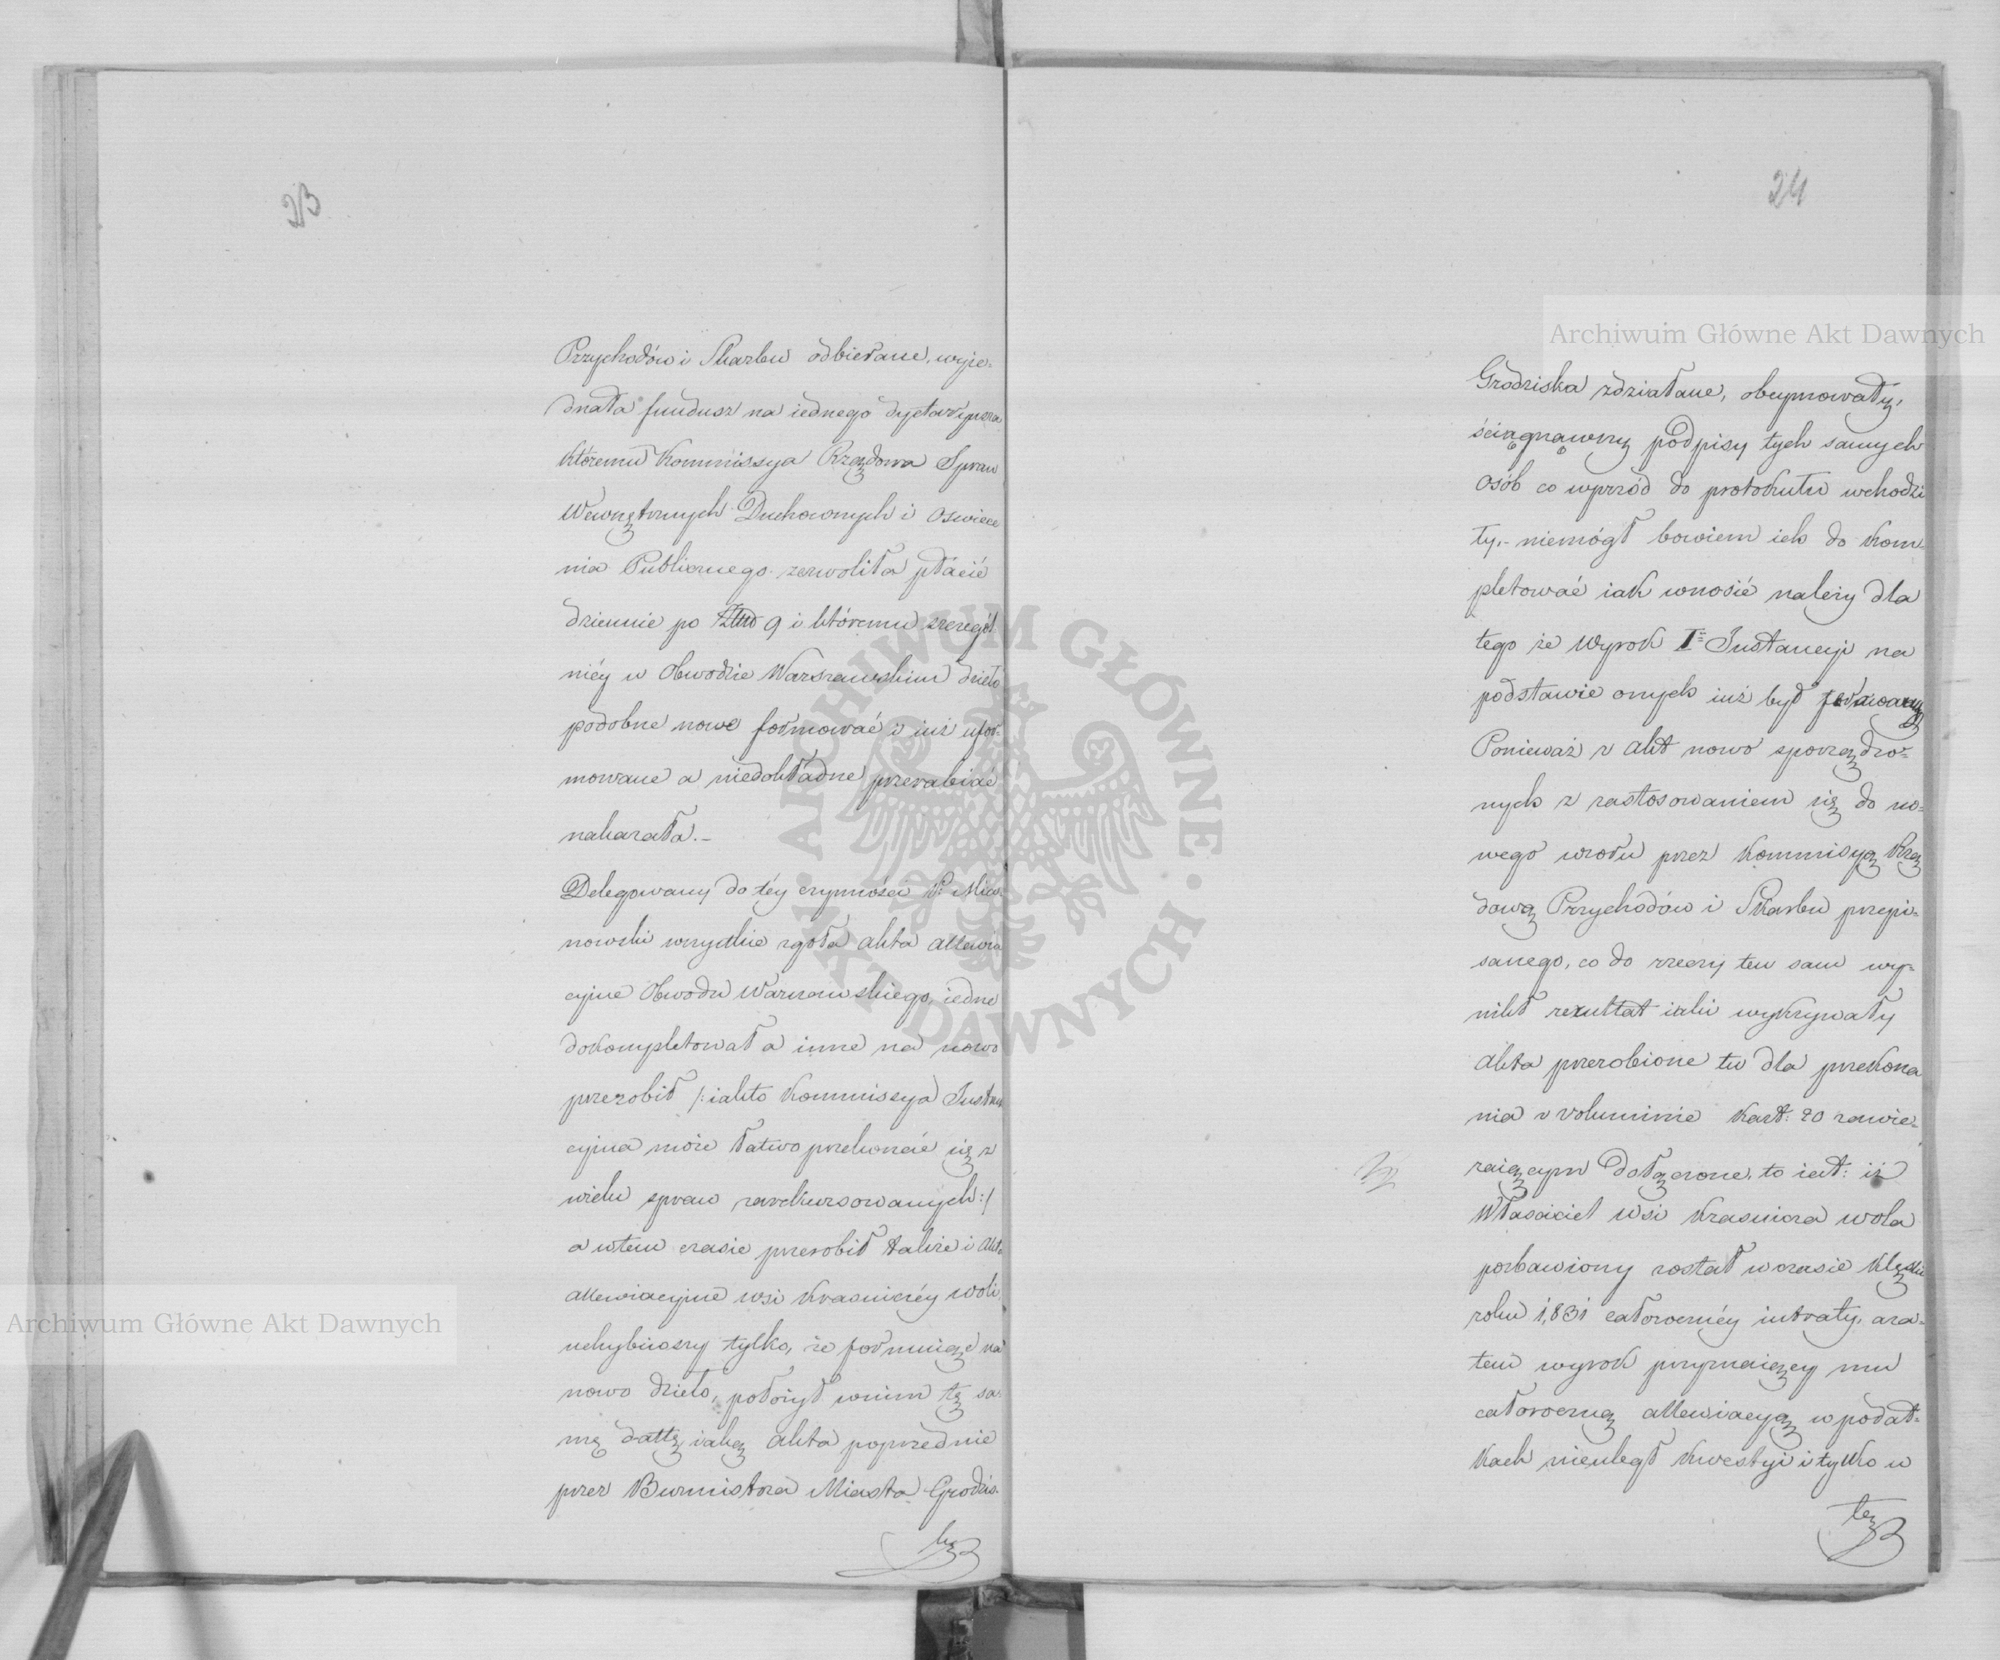 23
Przychodów i Skarbu odbierane, wyie-
dnała fundusz na iednego dyetaryusza
któremu Kommissya Rządowa Spraw
Wewnętrznych Duchownych i Oswiece
nia Publicznego zezwoliła płacić
dziennie po 9 i któremu szczegól-
niéy w Obwodzie Warszawskim dzieło
podobne nowe formować i iuż ufor-
mowane a niedokładne przerabiać
nakazała.-
Delegowany do téy czynności P:
nowski wszystkie zgoła akta allewia
cyjne Obwodu Warszawskiego, iedne
dokompletował a inne na nowo
przerobił /: iakto Kommissya Instruk
cyjna może łatwo przekonać się z
wielu spraw zarekursowanych :/
a wtem czasie przerobił także i Akta
allewiacyjne wsi Krasniczéy woli
uchybiwszy tylko, że formuiąc na
nowo dzieło, położył wnim tę sa-
mę dattę iaką akta poprzednie
przez Burmistrza Miasta Grodzis-
ka
24
Grodziska zdziałane, obeymowały,
ściągnąwszy podpisy tych samych
osób co wprzód do protokułu wchodzi
ły.- niemógł bowiem ich do kom-
pletować iak wnosić należy dla
tego że Wyrok I Instancyi na
podstawie onych iuż był ferowany
Ponieważ z akt nowo sporządzo-
nych z zastosowaniem się do no-
wego wzoru przez Kommisyą Rzą
dową Przychodów i Skarbu przepi-
sanego, co do rzeczy ten sam wy-
nikł rezultat iaki wykrywały
Akta przerobione tu dla przekona
nia w voluminie Kart: 20 zawie-
raiącym dołączone, to iest: iż
Właściciel wsi Krasnicza wola
pozbawiony został wczasie klęski
roku 1831 całorocznéy intraty, aza-
tem wyrok przyznaiący mu
całoroczną allewiacyą w podat-
kach nieuległ kwestyi i tylko w
tę
Archiwum Główne Akt Dawnych
Archiwum Główne Akt Dawnych
ARCHIWUM GŁÓWNE AKT DAWNYCH